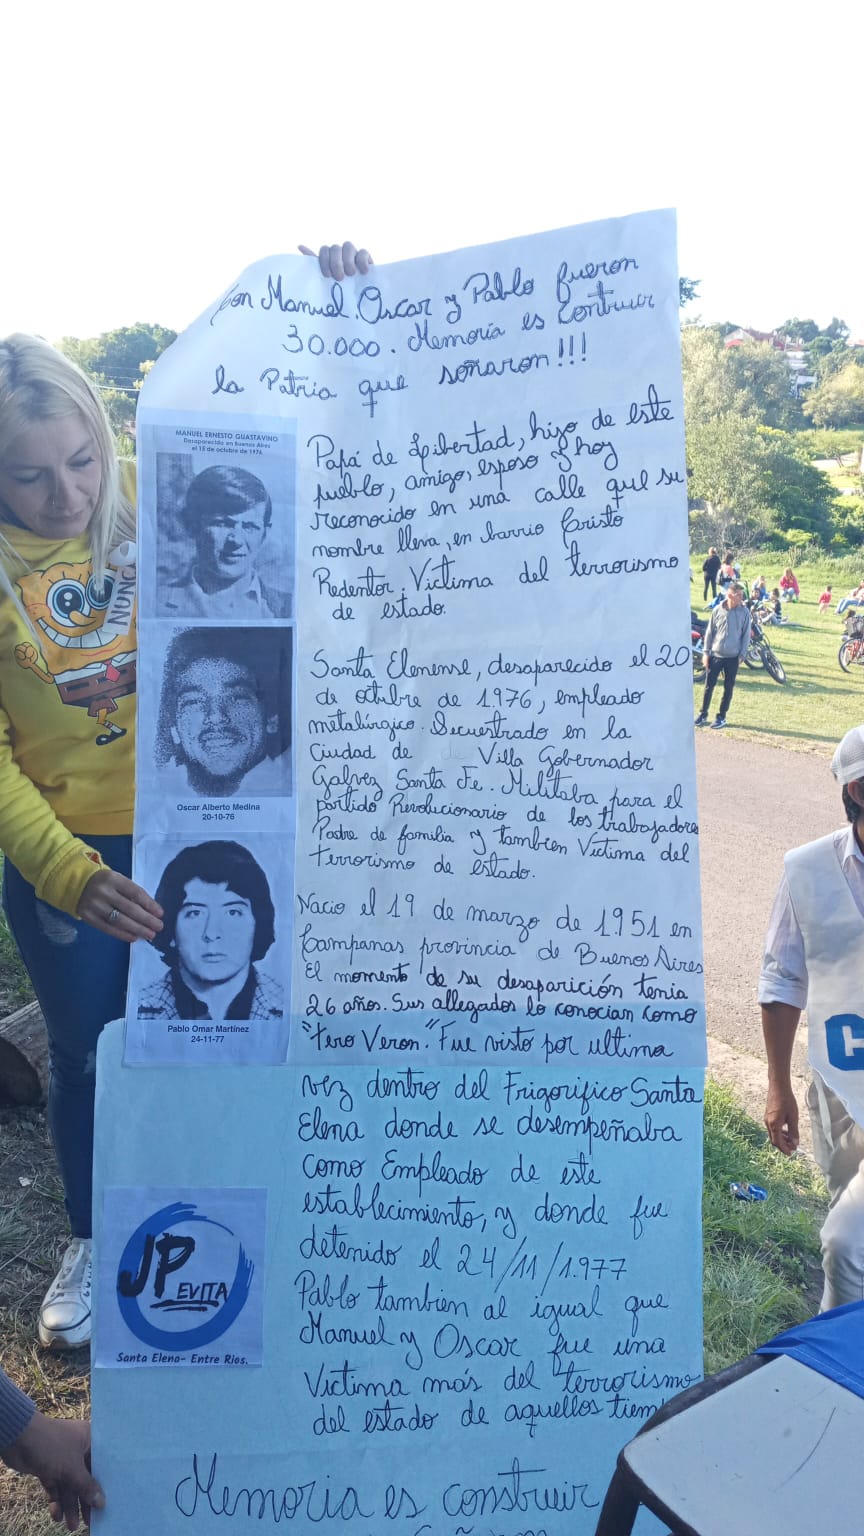 Con Manuel, Oscar y Pablo fueron
30.000. Memoria es Contruir
la Patria que soñaron!!!
MANUEL ERNESTO GUASTAVINO
Desaparecido en Buenos Aires
el 15 de octubre de 1976
Papá de Libertad, hijo de este
pueblo, amigo, esposo y hoy
reconocido en una calle que su
nombre lleva, en barrio Cristo
Redentor. Victima del terrorismo
de estado.
Oscar Alberto Medina
20-10-76
Santa Elenense, desaparecido el 20
de octubre de 1976, empleado
metalúrgico. Secuestrado en la
Ciudad de Villa Gobernador
Galvez Santa Fe. Militaba para el
partido Revolucionario de los trabajadores
Padre de familia y tambien Victima del
terrorismo de estado.
Pablo Omar Martínez
24-11-77
Nacio el 19 de marzo de 1951 en
Campanas provincia de Buenos Aires
El momento de su desaparición tenia
26 años. Sus allegados lo conocian como
"Tero Veron". Fue visto por ultima
vez dentro del Frigorifico Santa
Elena donde se desempeñaba
como Empleado de este
establecimiento, y donde fue
detenido el 24/11/1.977
Pablo tambien al igual que
Manuel y Oscar fue una
Victima más del terrorismo
del estado de aquellos tiem
JP
EVITA
Santa Elena- Entre Rios.
Memoria es construir
NUNCA